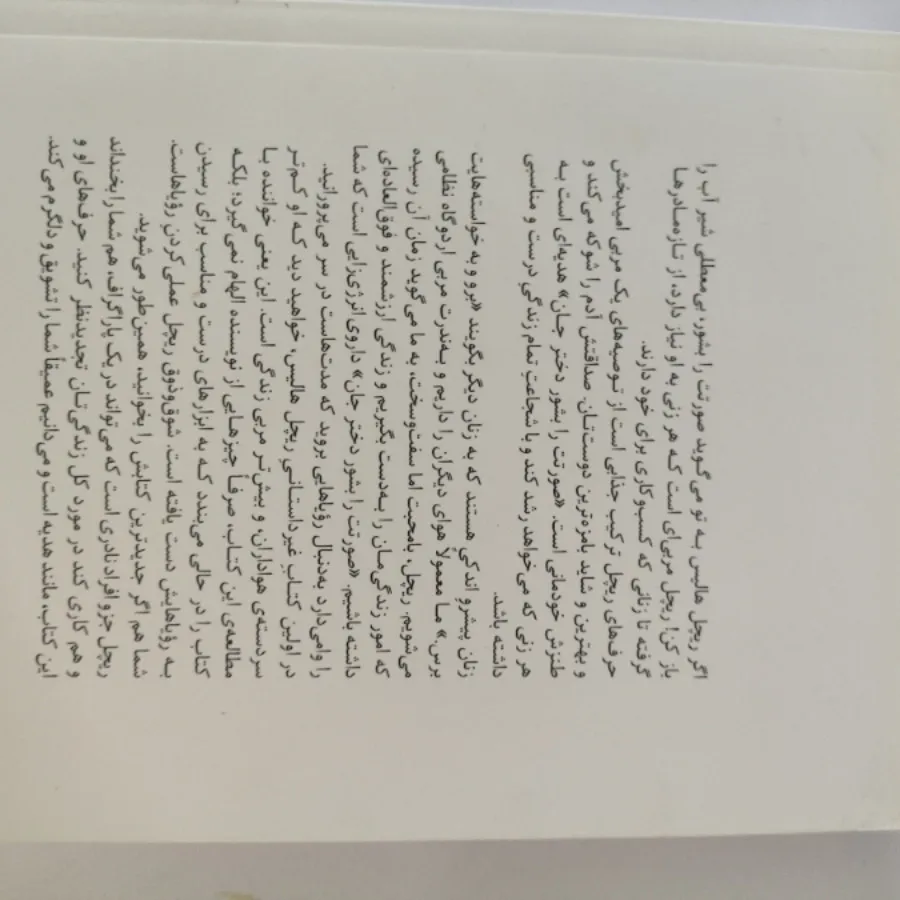 اگر ریچل هالیس به تو می‌گوید صورتت را بشور، بی‌معطلی شیر آب را
باز کن! ریچل مربی‌ای است که هر زنی به او نیاز دارد، از تازه‌مادرها
گرفته تا زنانی که کسب‌وکاری برای خود دارند.
حرف‌های ریچل ترکیب جذابی است از توصیه‌های یک مربی امیدبخش
و بهترین و شاید بامزه‌ترین دوست‌تان. صداقتش آدم را شوکه می‌کند و
طنزش خودمانی است. «صورتت را بشور دختر جان» هدیه‌ای است به
هر زنی که می‌خواهد رشد کند و با شجاعتِ تمام زندگی درست و مناسبی
داشته باشد.
زنان پیشروِ اندکی هستند که به زنان دیگر بگویند «برو و به خواسته‌هایت
برس.» ما معمولاً هوای دیگران را داریم و به‌ندرت مربی اردوگاه نظامی
می‌شویم. ریچل، بامحبت اما سفت‌وسخت، به ما می‌گوید زمان آن رسیده
که امور زندگی‌مان را به‌دست بگیریم و زندگی ارزشمند و فوق‌العاده‌ای
داشته باشیم. «صورتت را بشور دختر جان» داروی انرژی‌زایی است که شما
را وامی‌دارد به‌دنبال رؤیاهایی بروید که مدت‌هاست در سر می‌پرورانید.
در اولین کتابِ غیرداستانیِ ریچل هالیس، خواهید دید که او کم‌تر
سردسته‌ی هواداران، و بیش‌تر مربی زندگی است. این یعنی خواننده با
مطالعه‌ی این کتاب، صرفاً چیزهایی از نویسنده الهام نمی‌گیرد؛ بلکه
کتاب را در حالی می‌بندد که به ابزارهای درست و مناسب برای رسیدن
به رؤیاهایش دست یافته است. شوق‌وذوق ریچل عملی‌کردن رؤیاهاست.
شما هم اگر جدیدترین کتابش را بخوانید، همین‌طور می‌شوید.
ریچل جزو افراد نادری است که می‌تواند در یک پاراگراف، هم شما را بخنداند
و هم کاری کند در مورد کل زندگی‌تان تجدیدنظر کنید. حرف‌های او و
این کتاب، مانند هدیه است و می‌دانیم عمیقاً شما را تشویق و دلگرم می‌کند.